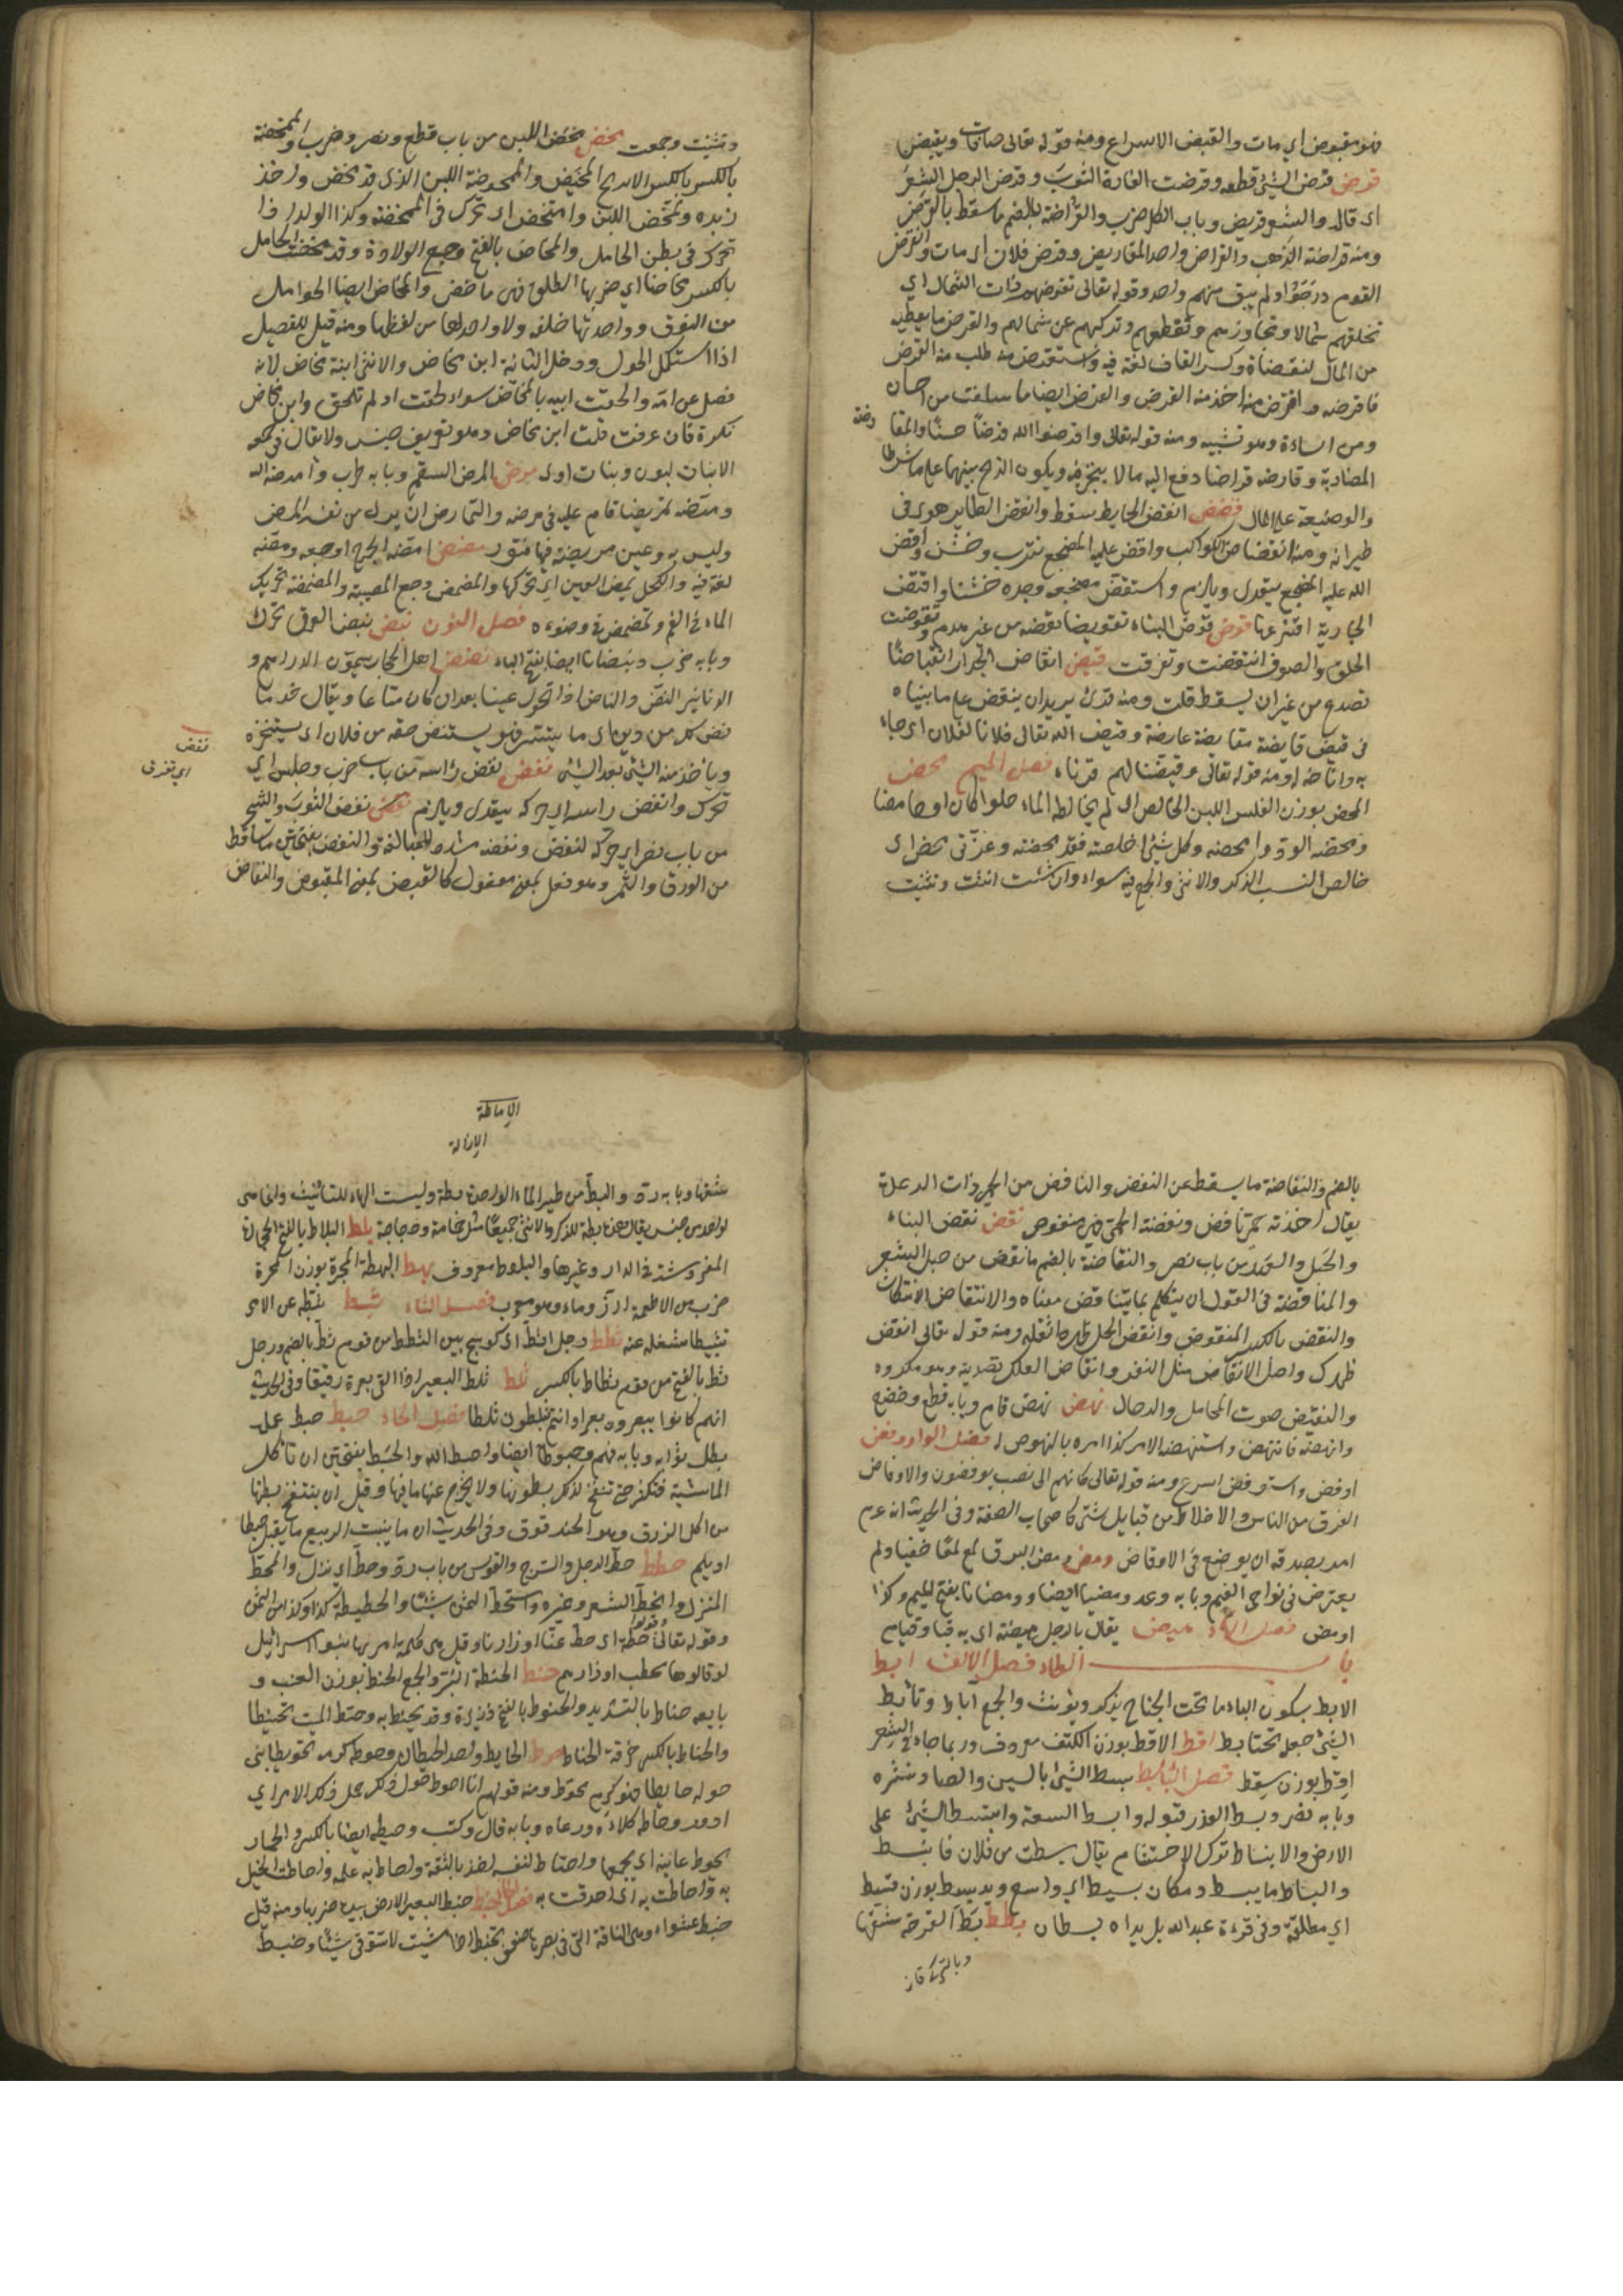 فهو مقبوض اي مات والقبض الاسراع ومنه قوله تعالى صافات ويقبضن
قرض قرض الشئ قطعه وقرضت الفارة الثوب وقرض الرجل الشعر
اى قاله والشعر قريض وباب الكل ضرب والقراضة بالضم ما سقط بالقرض
ومنه قراضة الذهب والمقراض واحد المقاريض وقرض فلان اى مات وانقرض
القوم درجوا ولم يبق منهم واحد وقوله تعالى تقرضهم ذات الشمال اي
تخلفهم شمالا وتجاوزهم وتقطعهم وتتركهم عن شمالها والقرض ما يعطيه
من المال لتقضاه وكسر القاف لغة فيه واستقرض منه طلب منه القرض
فاقرضه واقترض منه اخذ منه القرض والقرض ايضا ما سلفت من احسان
ومن اساءة وهو تشبيه ومنه قوله تعالى واقرضوا الله قرضا حسنا والمقا رضة
المضاربة وقارضه قراضا دفع اليه مالا ليتجر فيه ويكون الربح بينهما على ما شرطا
والوضيعة على المال قضض انقض الحايط سقط وانقض الطاير هوى في
طيرانه ومنه انقضاض الكواكب واقض عليه المضجع تترب وخشن واقض
الله عليه المضجع يتعدى ويلزم واستقض مضجعه وجده خشنا واقتض
الجارية افترعها قوض قوض البناء تقويضا نقضه من غير هدم وتقوضت
الحلق والصفوف انتقضت وتفرقت قيض انقاض الجدار انقياضا
تصدع من غير ان يسقط قلت ومنه قرئ يريد ان ينقض على ما بيناه
في قيض قايضه مقايضة عارضه وقيض الله تعالى فلانا لفلان اى جاء
به واتاحه له ومنه قوله تعالى وقيضنا لهم قرناء فصل الميم محض
المحض بوزن الفلس اللبن الخالص الذى لم يخالطه الماء حلوا كان او حامضا
ومحضه الود وامحضه وكل شئ اخلصته فقد محضته وعربى محض اى
خالص النسب الذكر والانثى والجمع فيه سواء وان شئت انثت وثنيت
وثنيت وجمعت مخض مخض اللبن من باب قطع ونصر وضرب والممخضة
بالكسر الابريج والمخيض والممخوض اللبن الذى قد مخض واخذ
زبده وتمخض اللبن وامتخض اى تحرك في الممخضة وكذا الولد اذا
تحرك في بطن الحامل والمخاض بالفتح وجع الولادة وقد مخضت الحامل
بالكسر مخاضا اي ضربها الطلق فهي ماخض والمخاض ايضا الحوامل
من النوق وواحدتها خلفة ولا واحد لها من لفظها ومنه قيل للفصيل
اذا استكمل الحول ودخل الثانية ابن مخاض والانثى ابنة مخاض لانه
فصل عن امه والحقت امه بالمخاض سواء لقحت او لم تلقح وابن مخاض
نكرة فان عرفت قلت ابن المخاض وهو تعريف جنس ولا يقال في جمعه
الا بنات مخاض وبنات لبون وبنات اوى مرض المرض السقم وبابه طرب وامرضه الله
ومرضه تمريضا قام عليه في مرضه والتمارض ان يرى من نفسه المرض
وليس به وعين مريضة فيها فتور مضض امضه الجرح اوجعه ومضه
لغة فيه والكحل يمض العين اي يحرقها والمضض وجع المصيبة والمضمضة تحريك
الماء في الفم وتمضمض في وضوءه فصل النون نبض نبض العرق تحرك
وبابه ضرب ونبضانا ايضا بفتح الباء نضض اهل الحجاز يسمون الدراهم و
الدنانير النض والناض اذا تحول عينا بعد ان كان متاعا ويقال خذ ما
نض لك من دين اى ما تيسر وهو يستنض حقه من فلان اى يستنجزه
وياخذ منه الشئ بعد الشئ نغض نغض راسه من باب ضرب وجلس اي
تحرك وانغض راسه اي حركه يتعدى ويلزم نفض نفض الثوب والشجر
من باب نصر اي حركه لينتفض ونفضه مشدد للمبالغة والنفض بفتحتين ما تساقط
من الورق والثمر وهو فعل بمعنى مفعول كالقبض بمعنى المقبوض والنفاض
نغض
اي تحرك
بالضم والنفاضة ما سقط عن النفض والنافض من الحمى ذات الرعدة
يقال اخذته حمى نافض ونفضته الحمى فهو منفوض نقض نقض البناء
والحبل والعهد من باب نصر والنقاضة بالضم ما نقض من حبل الشعر
والمناقضة في القول ان يتكلم بما يتناقض معناه والانتقاض الانتكاث
والنقض بالكسر المنقوض وانقض الحمل ظهره اثقله ومنه قوله تعالى انقض
ظهرك واصل الانقاض مثل النقر وانقاض العلك تصويته وهو مكروه
والنقيض صوت المحامل والرحال نهض نهض قام وبابه قطع وخضع
وانهضه فانتهض واستنهضه لامر كذا امره بالنهوض له فصل الواو وفض
اوفض واستوفض اسرع ومنه قوله تعالى كانهم الى نصب يوفضون والاوفاض
الفرق من الناس والاخلاط من قبايل شتى كاصحاب الصفة وفي الحديث انه عم
امر بصدقة ان يوضع في الاوفاض ومض ومض البرق لمع لمعا خفيا ولم
يعترض في نواحي الغيم وبابه وعد وميضا ايضا وومضانا بفتح الميم وكذا
اومض فصل الهاء هيض يقال بالرجل هيضة اى به قيا وقيام
باب الطاء فصل الالف ابط
الابط بسكون الباء ما تحت الجناح يذكر ويؤنث والجمع اباط وتأبط
الشئ جعله تحت ابطه اقط الاقط بوزن الكتف معروف وربما جاء في الشعر
اقط بوزن سقط فصل الباء بسط بسط الشئ بالسين والصاد نشره
وبابه نصر وبسط العذر قبوله والبسطة السعة وانبسط الشئ على
الارض والانبساط ترك الاحتشام يقال بسطت من فلان فانبسط
والبساط ما يبسط ومكان بسيط اي واسع ويد بسط بوزن قسط
اي مطلقة وفي قراءة عبد الله بل يداه بسطان بطط بط القرحة شقها
الاماطة
الازالة
شقها وبابه رد والبط من طير الماء الواحدة بطة وليست الهاء للتانيث وانما هى
لواحد من جنس يقال هذه بطة للذكر والانثى جميعا مثل حمامة ودجاجة بلط البلاط بالفتح الحجارة
المفروشة في الدار وغيرها والبلوط معروف بهط البهطة
ضرب من الاطعمة ارز وماء وهو معرب فصل الثاء ثبط ثبطه عن الامر
تثبيطا شغله عنه ثطط رجل اثط اى كوسج بين الثطط من قوم ثط بالضم ورجل
ثط بالفتح من قوم ثطاط بالكسر ثلط ثلط البعير اذا القى بعره رقيقا وفي الحديث
انهم كانوا يبعرون بعرا وانتم تثلطون ثلطا فصل الحاء حبط حبط عمله
بطل ثوابه وبابه فهم وحبوطا ايضا واحبطه الله والحبط بفتحتين ان تأكل
الماشية فتكثر حتى تنتفخ لذلك بطونها ولا يخرج عنها ما فيها وقيل ان ينتفخ بطنها
من اكل الذرق وهو الحندقوق وفي الحديث ان مما ينبت الربيع ما يقتل حبطا
او يلم حطط حط الرحل والسرج والقوس من باب رد وحط اي نزل والمحط
المنزل وانحط السعر وغيره واستحط من الثمن شيئا والحطيطة كذا وكذا من الثمن
وقوله تعالى حطة اى حط عنا اوزارنا وقيل هى كلمة امر بها بنو اسرائيل
لو قالوها لحطت اوزارهم حنط الحنطة البر والجمع الحنط بوزن العنب و
بايعه حناط بالتشديد والحنوط بالفتح ذريرة وقد تحنط به وحنط الميت تحنيطا
والحناط بالكسر حرفة الحناط حوط الحايط واحد الحيطان وحوط كرمه تحويطا بنى
حوله حايطا فهو كرم محوط ومنه قولهم انا احوط حول ذلك الامر اي
ادور وحاطه كلأه ورعاه وبابه قال وكتب وحيطة ايضا بالكسر والحمار
يحوط عانته اى يجمعها واحتاط لنفسه اخذ بالثقة واحاط به علمه واحاطت الخيل
به واحتاطت به اى احدقت به فصل الخاء خبط خبط البعير الارض بيده ضربها ومنه قيل
خبط عشواء وهى الناقة التى في بصرها ضعف تخبط اذا مشيت لا تتوقى شيئا وخبط